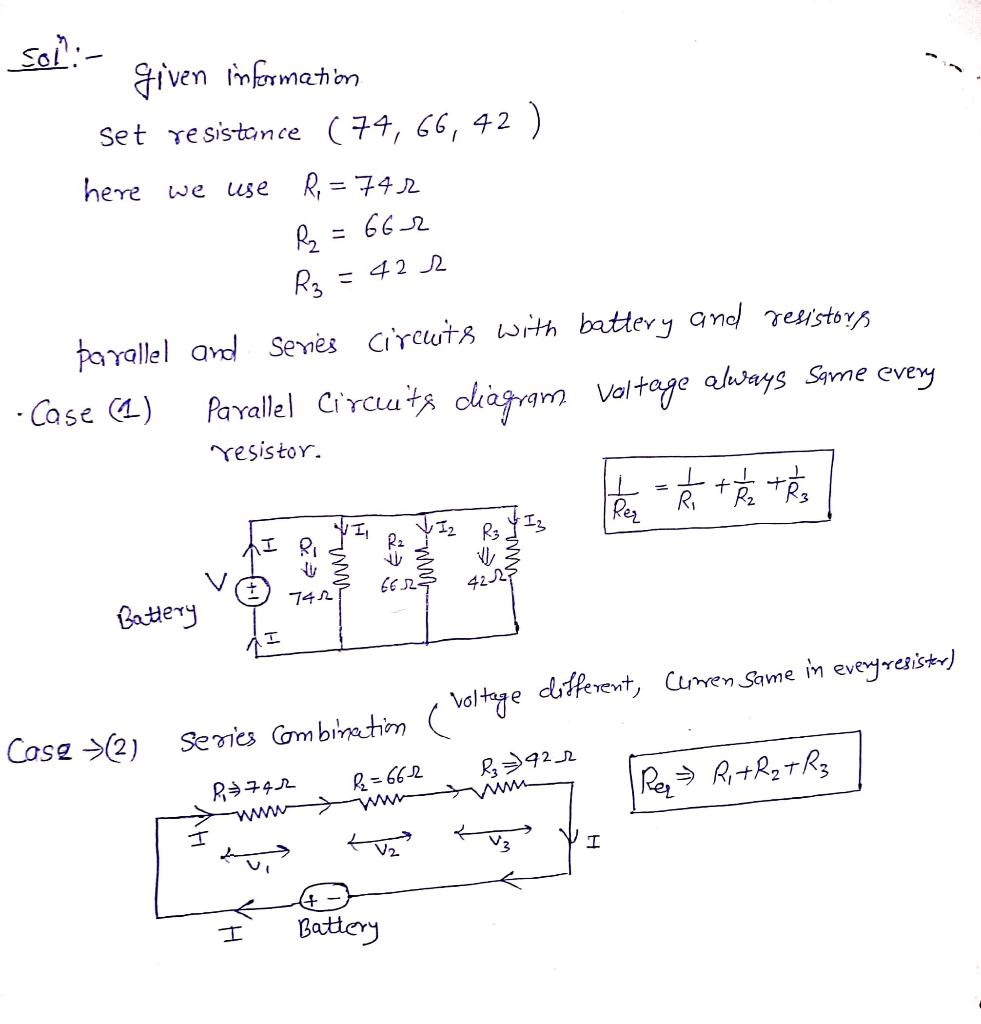 Solⁿ:-
given information
set resistance (74, 66, 42)
here we use R₁ = 74Ω
R₂ = 66Ω
R₃ = 42Ω
parallel and series circuits with battery and resistors
· Case (1) Parallel Circuits diagram voltage always same every
resistor.
1/Req = 1/R₁ + 1/R₂ + 1/R₃
I R₁ I₁ R₂ I₂ R₃ I₃
V + - 74Ω 66Ω 42Ω
Battery
I
Case →(2) Series Combination (voltage different, Curren same in every resister)
R₁⇒74Ω R₂=66Ω R₃⇒42Ω
Req ⇒ R₁+R₂+R₃
I V₁ V₂ V₃ I
+ -
I Battery